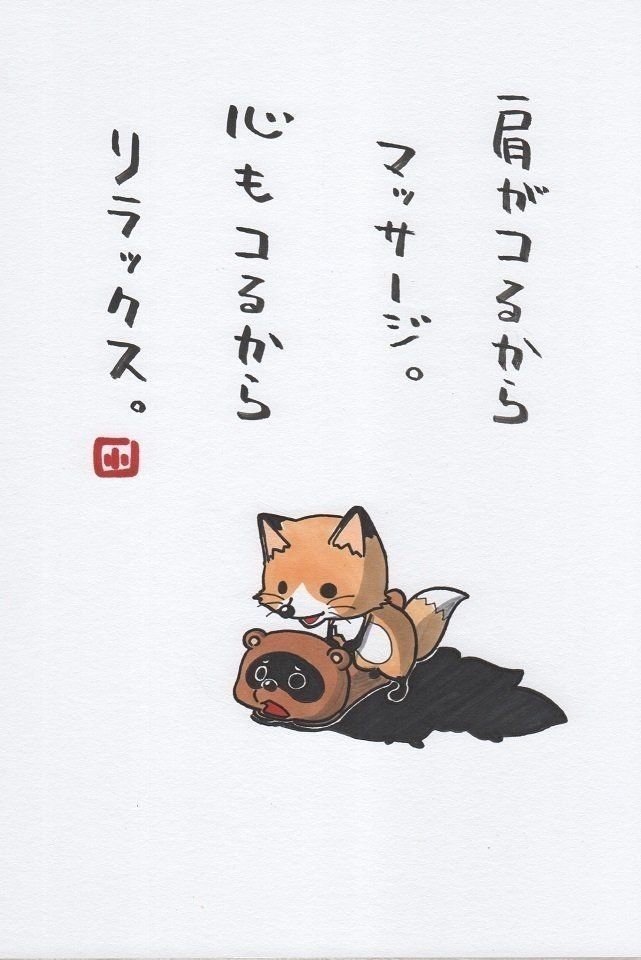 肩がコるから
マッサージ。
心もコるから
リラックス。
小